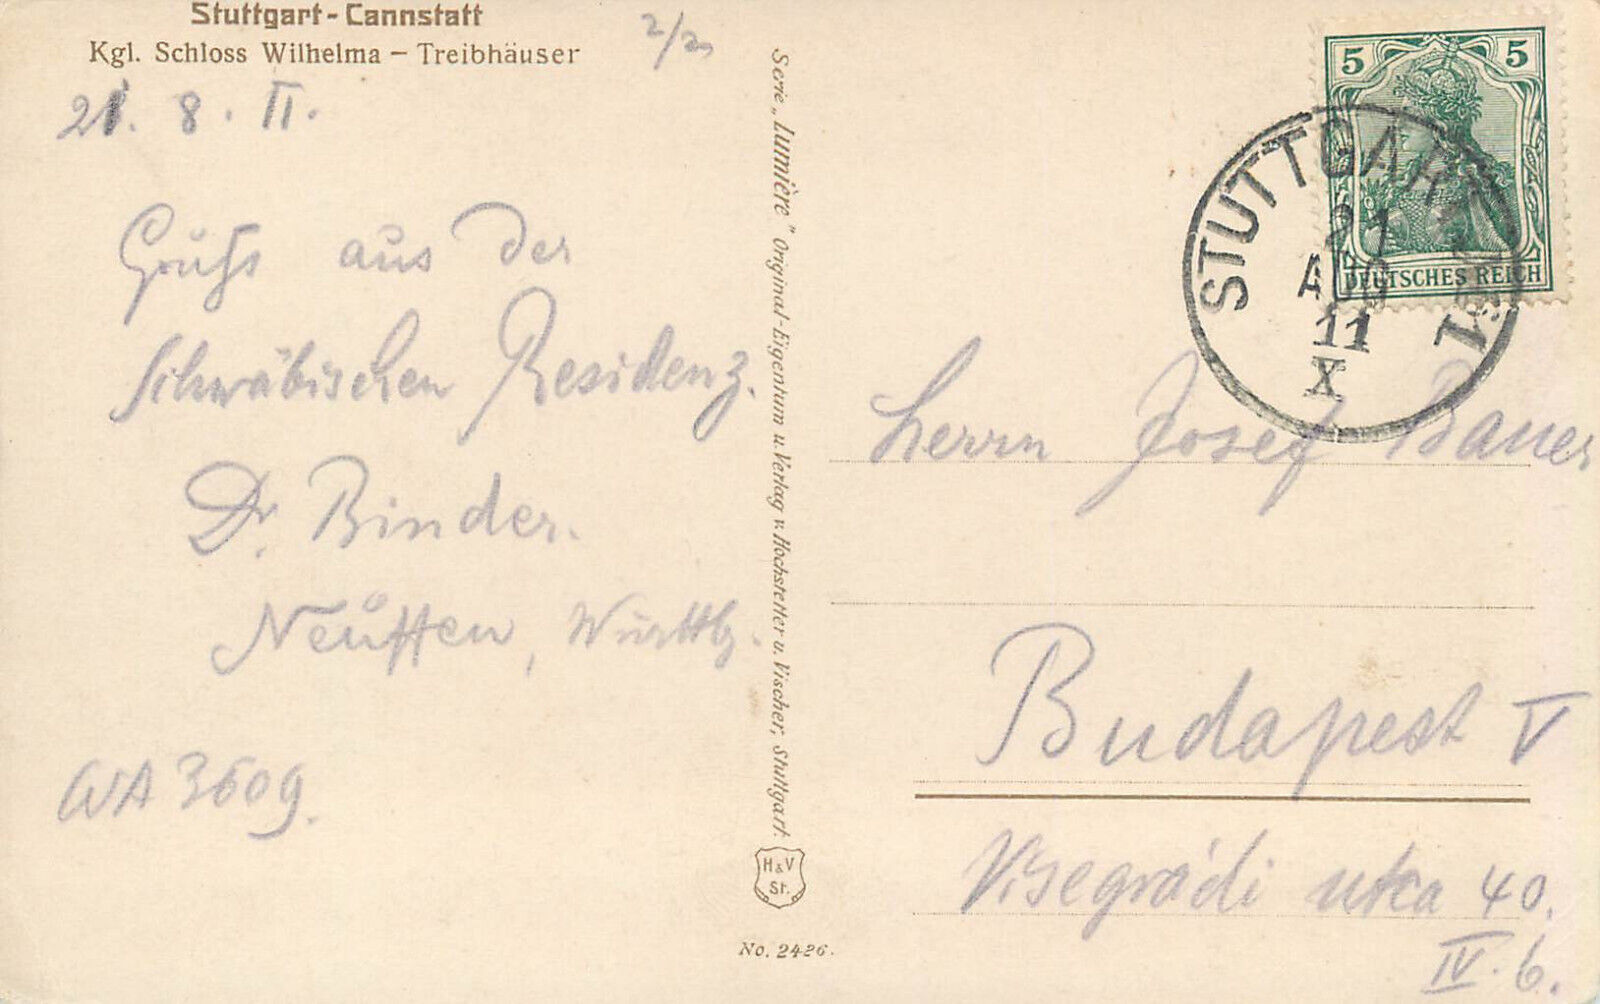 Stuttgart-Cannstatt
Kgl. Schloss Wilhelma – Treibhäuser
2/2
21. 8. 11.
Gruß aus der
schwäbischen Residenz.
Dr. Binder.
Neuffen, Württbg.
WA 3609.
Serie „Lumière" Original-Eigentum u. Verlag v. Hochstetter u. Vischer, Stuttgart.
H & V
St.
No. 2426.
5 5
DEUTSCHES REICH
STUTTGART
21
AUG
11
X
Herrn Josef Bauer
Budapest V
Visegrádi utca 40.
IV. 6.